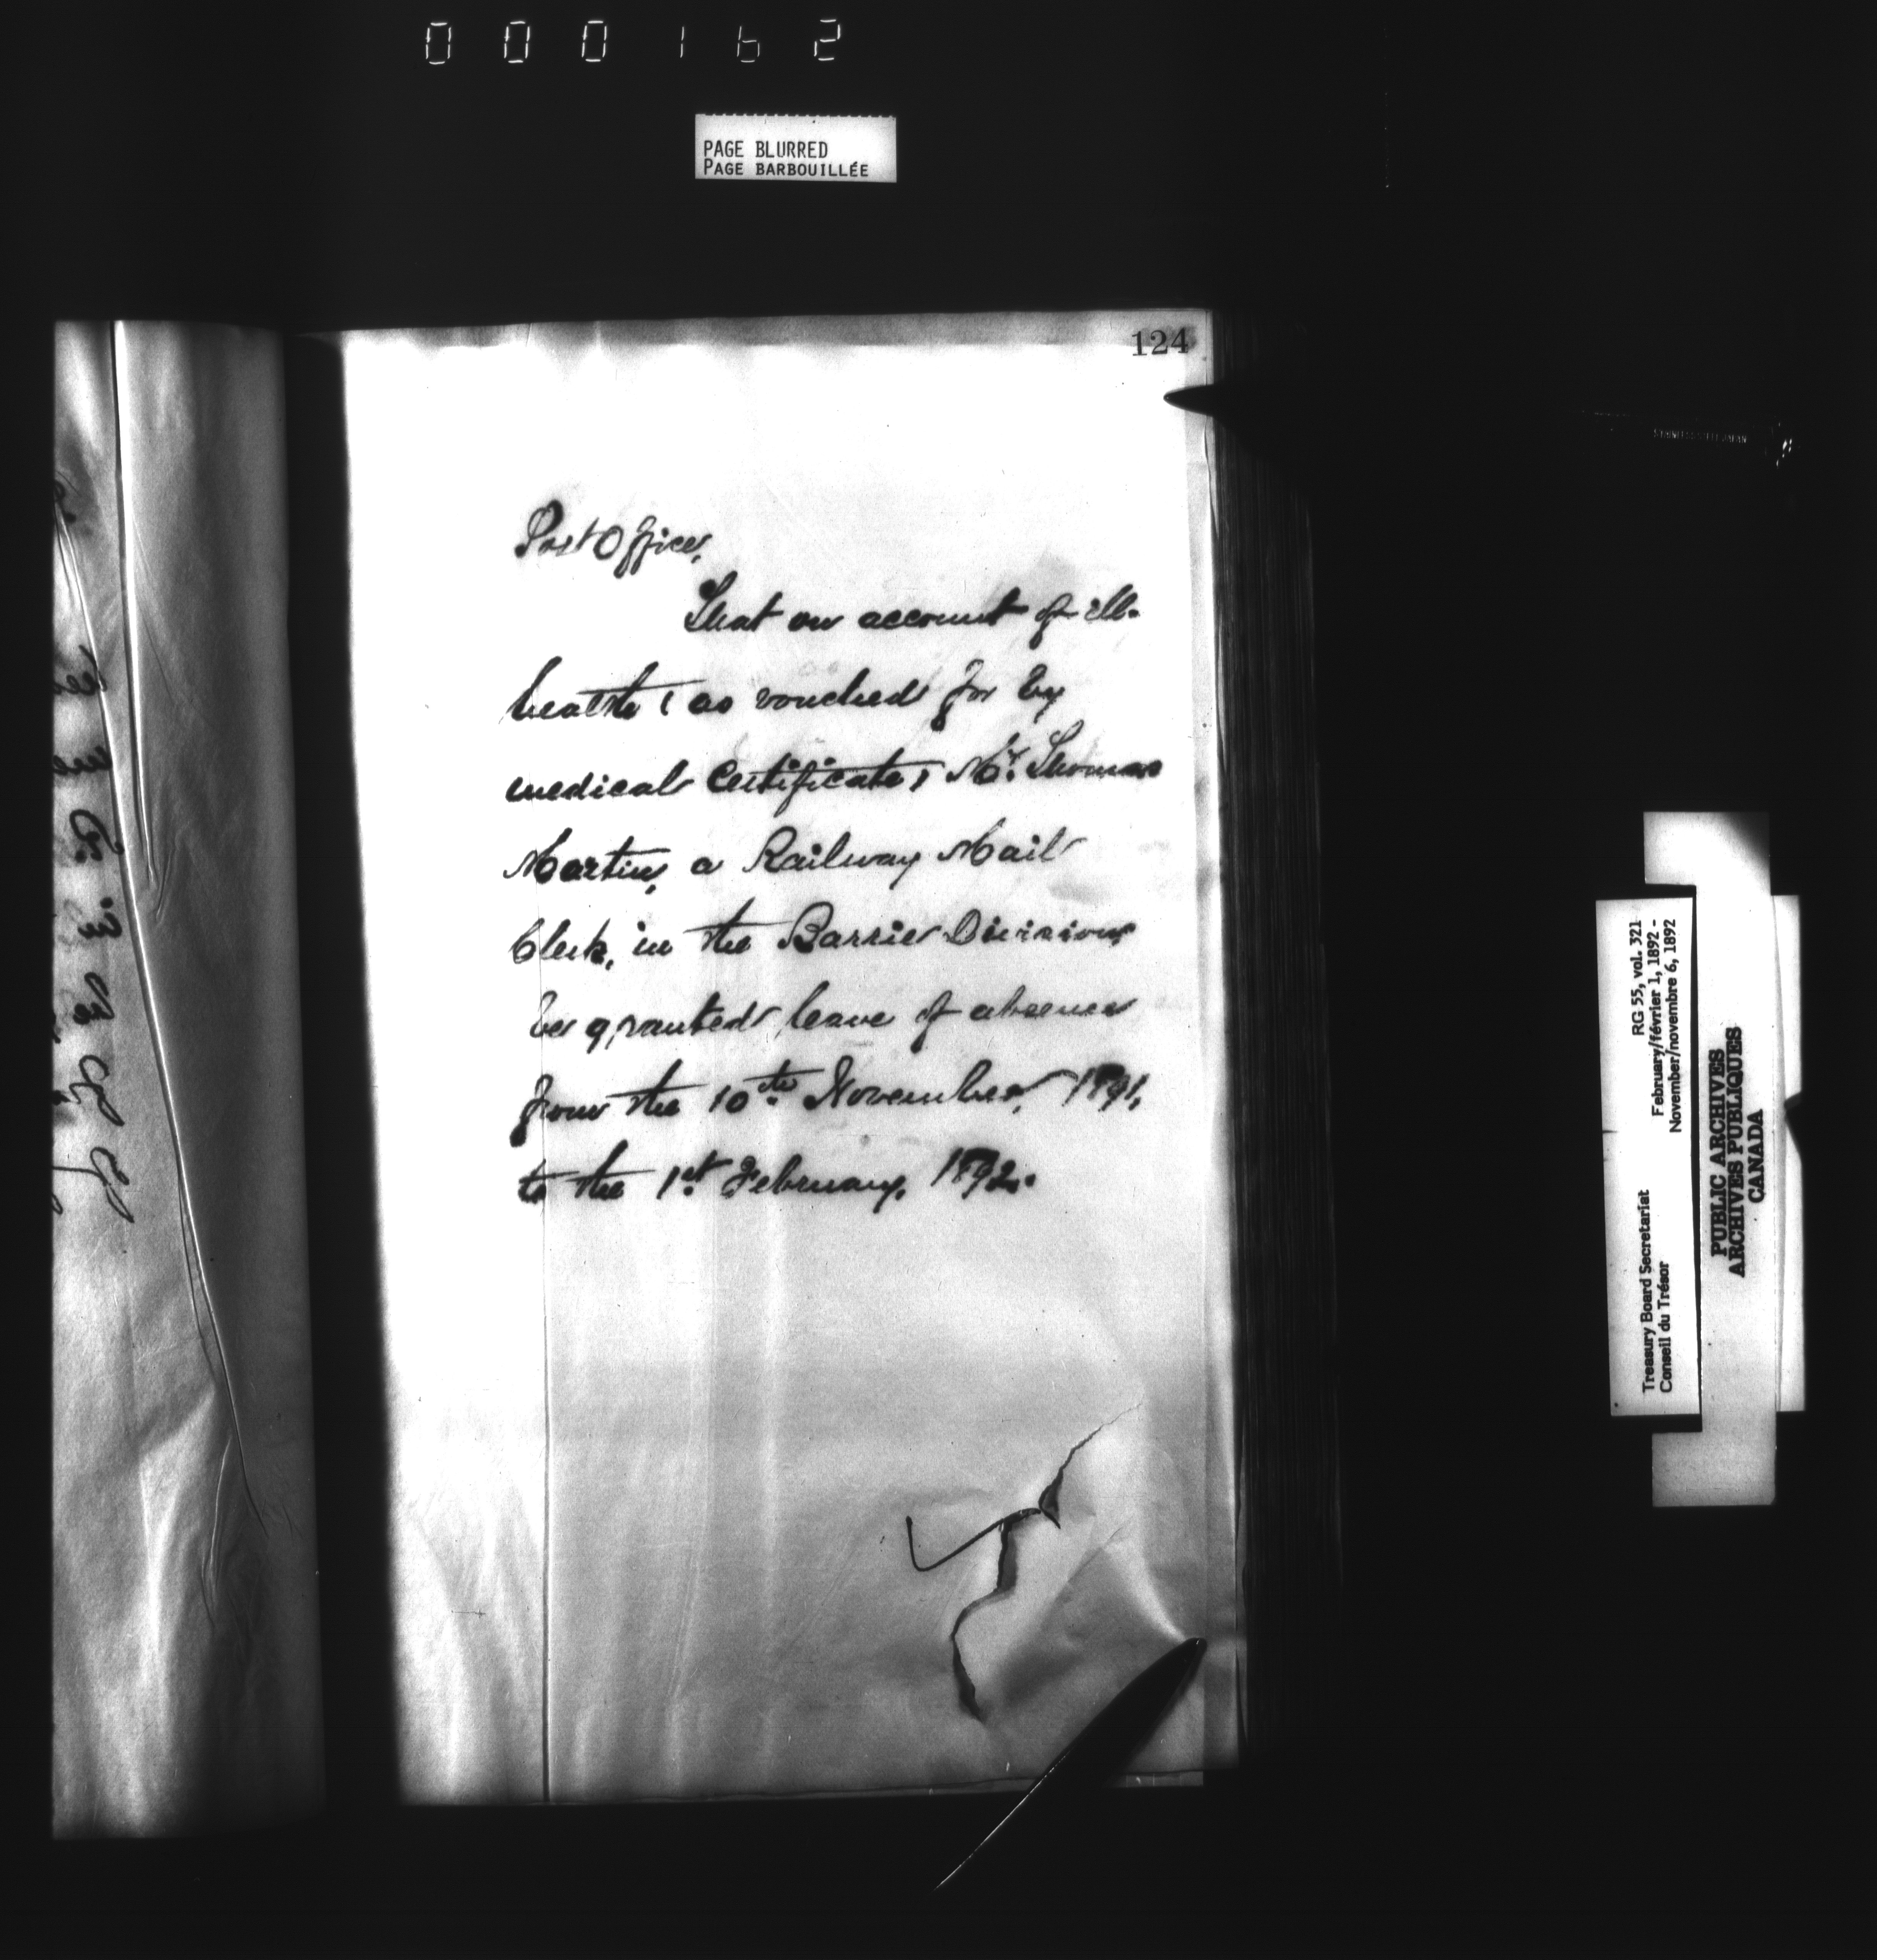 000162
PAGE BLURRED
PAGE BARBOUILLÉE
124
Post Office,
That on account of ill-
health (as vouched for by
medical Certificate) Mr. Thomas
Martin, a Railway Mail
Clerk, in the Barrie Division,
be granted leave of absence
from the 10th November, 1891,
to the 1st February, 1892.
RG 55, vol. 321
February/février 1, 1892 -
November/novembre 6, 1892
Treasury Board Secretariat
Conseil du Trésor
PUBLIC ARCHIVES
ARCHIVES PUBLIQUES
CANADA